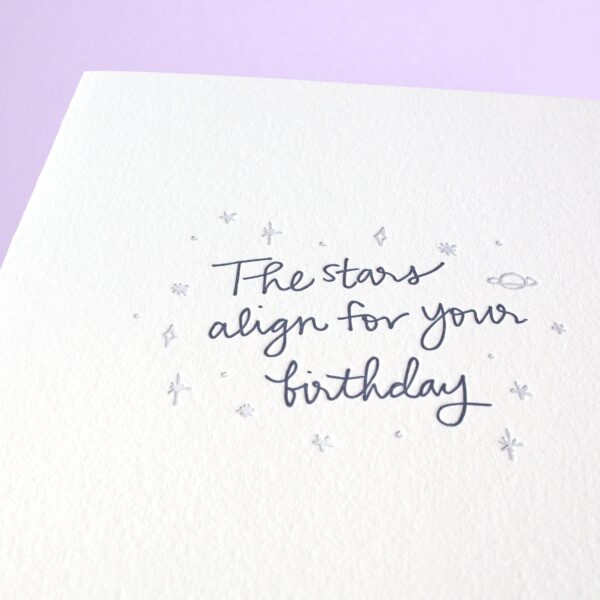 The stars
align for your
birthday